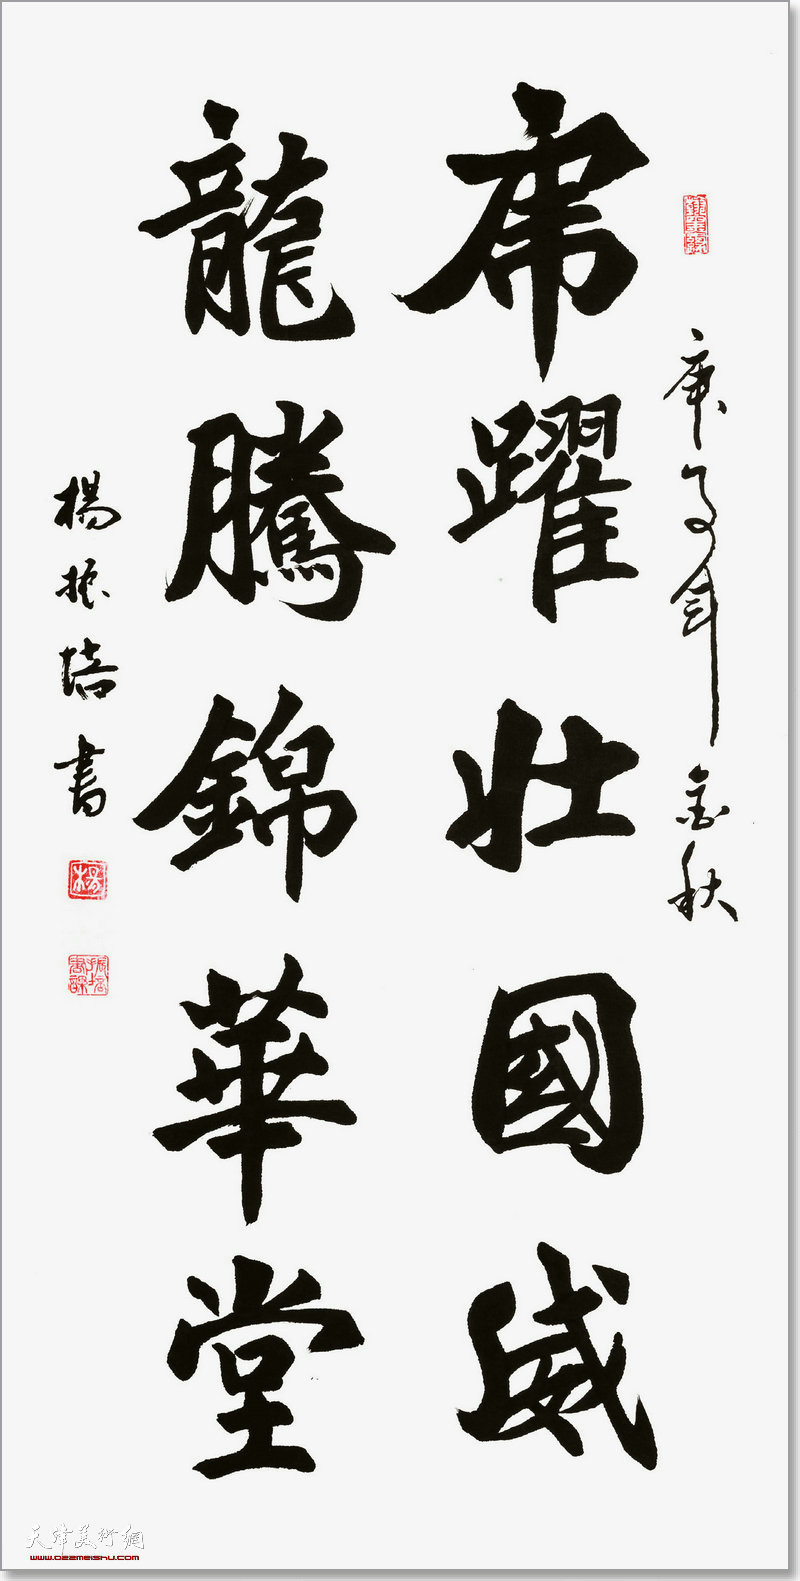 庚子年金秋
虎躍壯國威
龍騰錦華堂
楊振培書
楊
天津美術網
www.022meishu.com